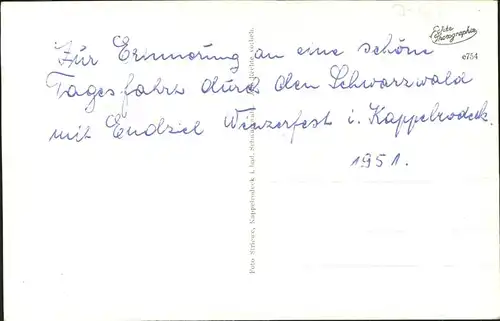 Zur Erinnerung an eine schöne
Tagesfahrt durch den Schwarzwald
mit Endziel Winzerfest i. Kappelrodeck.
1951.
Echte Photographie
e754
Foto Striewe, Kappelrodeck i. bad. Schwarzwald